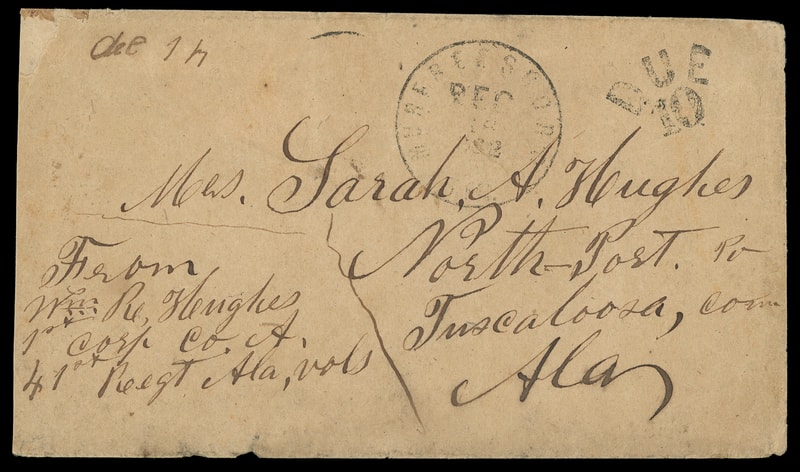 dec 14
MURFREESBOR
DEC
62
DUE
10
Mrs. Sarah, A. Hughes
North-Port. Po
Tuscaloosa, Com
Ala,
From
Wm R, Hughes
1st Corp Co. A.
41st Regt Ala, vols